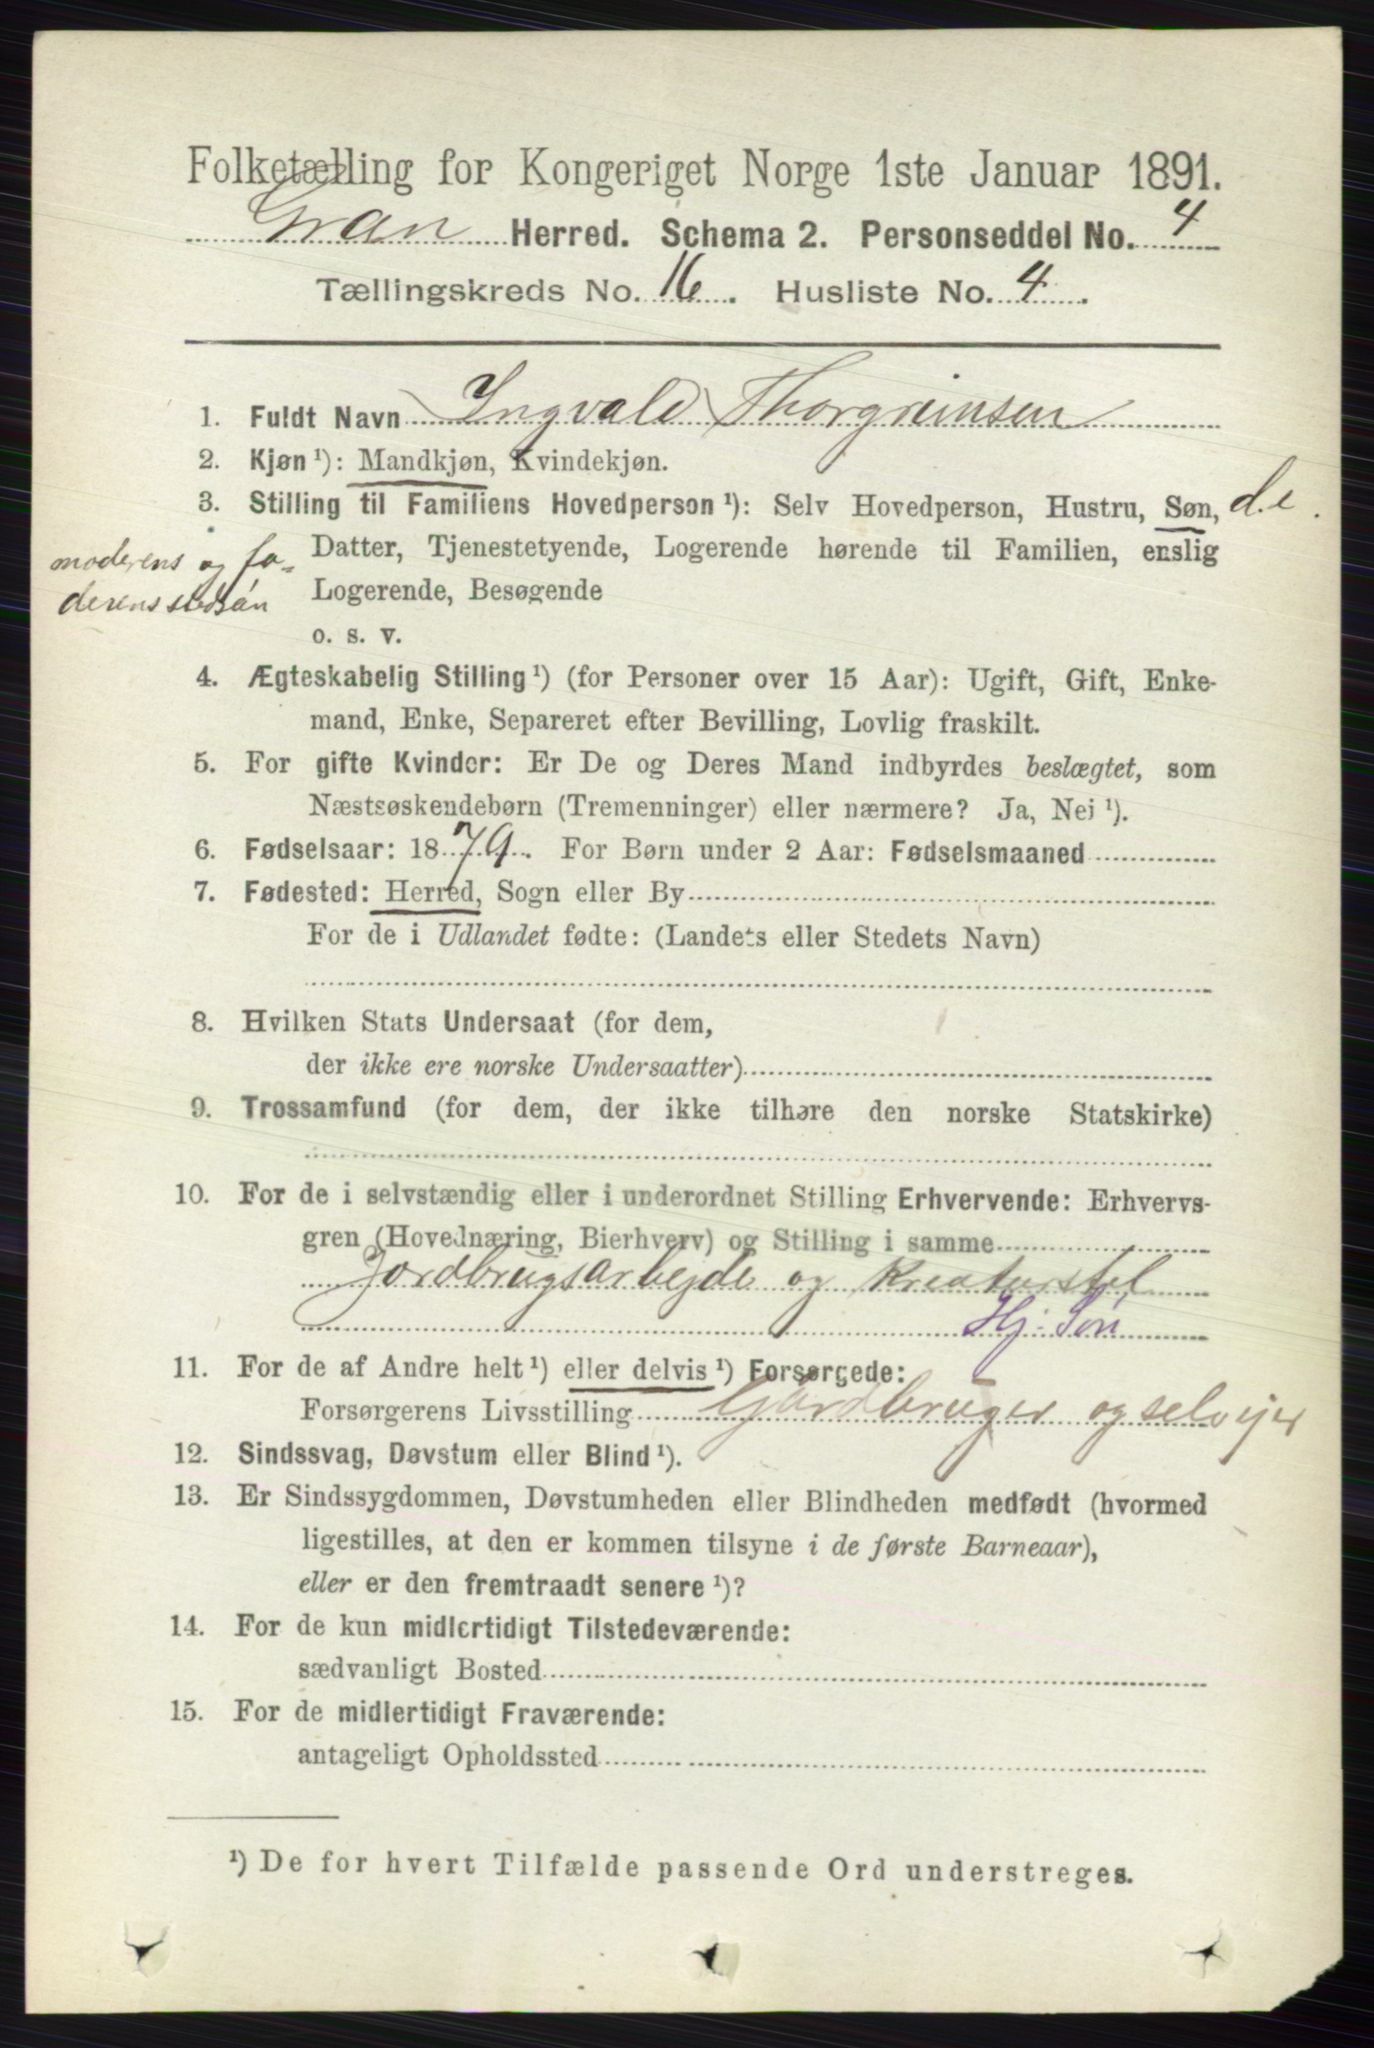 Folketælling for Kongeriget Norge 1ste Januar 1891.
Gran Herred. Schema 2. Personseddel No. 4
Tællingskreds No. 16. Husliste No. 4.
1. Fuldt Navn Ingvald Thorgrimsen
2. Kjøn ¹): Mandkjøn, Kvindekjøn.
3. Stilling til Familiens Hovedperson ¹): Selv Hovedperson, Hustru, Søn, d.e.
moderens og fa-
derens stedsøn
Datter, Tjenestetyende, Logerende hørende til Familien, enslig
Logerende, Besøgende
o. s. v.
4. Ægteskabelig Stilling ¹) (for Personer over 15 Aar): Ugift, Gift, Enke-
mand, Enke, Separeret efter Bevilling, Lovlig fraskilt.
5. For gifte Kvinder: Er De og Deres Mand indbyrdes beslægtet, som
Næstsøskendebørn (Tremenninger) eller nærmere? Ja, Nei ¹).
6. Fødselsaar: 1879. For Børn under 2 Aar: Fødselsmaaned
7. Fødested: Herred, Sogn eller By
For de i Udlandet fødte: (Landets eller Stedets Navn)
8. Hvilken Stats Undersaat (for dem,
der ikke ere norske Undersaatter)
9. Trossamfund (for dem, der ikke tilhøre den norske Statskirke)
10. For de i selvstændig eller i underordnet Stilling Erhvervende: Erhvervs-
gren (Hovednæring, Bierhverv) og Stilling i samme
Jordbrugsarbejde og Kreaturstel
Hj. Søn
11. For de af Andre helt ¹) eller delvis ¹) Forsørgede:
Forsørgerens Livsstilling Gårdbruger og selvejer
12. Sindssvag, Døvstum eller Blind ¹).
13. Er Sindssygdommen, Døvstumheden eller Blindheden medfødt (hvormed
ligestilles, at den er kommen tilsyne i de første Barneaar),
eller er den fremtraadt senere ¹)?
14. For de kun midlertidigt Tilstedeværende:
sædvanligt Bosted
15. For de midlertidigt Fraværende:
antageligt Opholdssted
¹) De for hvert Tilfælde passende Ord understreges.